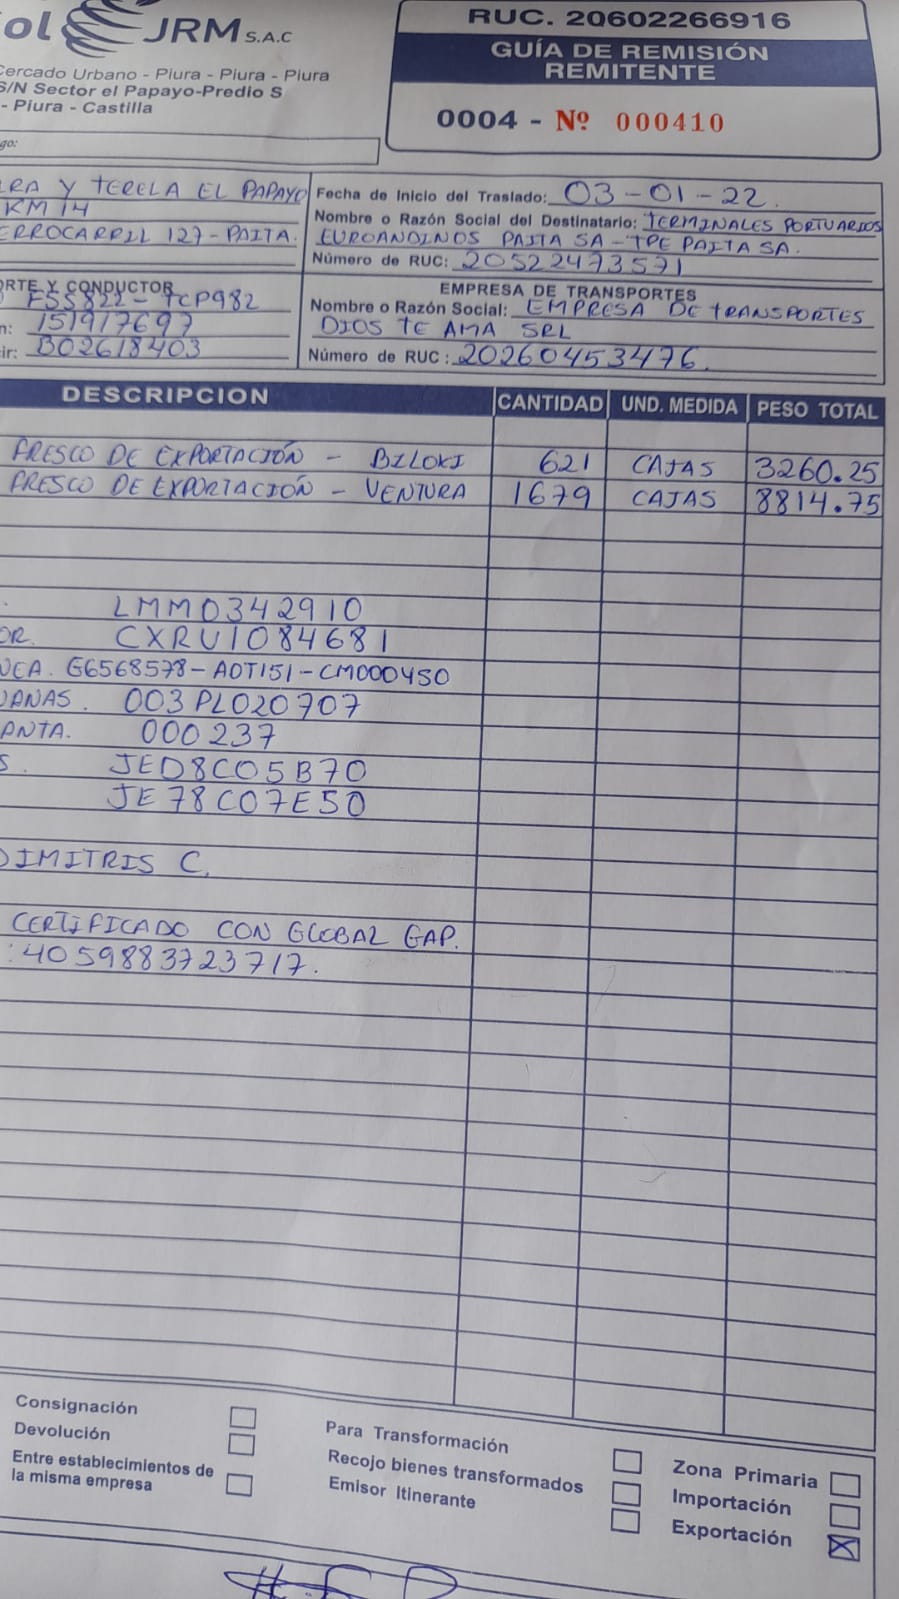 ol JRM S.A.C
RUC. 20602266916
GUÍA DE REMISIÓN
REMITENTE
0004 - Nº 000410
Cercado Urbano - Piura - Piura - Piura
S/N Sector el Papayo-Predio S
- Piura - Castilla
go:
RA Y TERELA EL PAPAYO
KM 14
ERROCARRIL 127-PAITA.
Fecha de Inicio del Traslado: 03-01-22.
Nombre o Razón Social del Destinatario: TERMINALES PORTUARIOS
EUROANDINOS PAITA SA - TPE PAITA SA.
Número de RUC: 20522473571
ORTE Y CONDUCTOR
F5S822 - TCP982
n: 151917697
ir: B02618403
EMPRESA DE TRANSPORTES
Nombre o Razón Social: EMPRESA DE TRANSPORTES
DIOS TE AMA SRL
Número de RUC: 20260453476.
DESCRIPCION CANTIDAD UND. MEDIDA PESO TOTAL
FRESCO DE EXPORTACIÓN - BILOXI 621 CAJAS 3260.25
FRESCO DE EXPORTACIÓN - VENTURA 1679 CAJAS 8814.75
LMM0342910
OR. CXRU1084681
NEA. G6568578-AOT151-CM000450
UANAS. 003PL020707
ANTA. 000237
S. JED8C05B70
JE78C07E50
DIMITRIS C.
CERTIFICADO CON GLOBAL GAP.
: 4059883723717.
Consignación
Devolución
Entre establecimientos de
la misma empresa
Para Transformación
Recojo bienes transformados
Emisor Itinerante
Zona Primaria
Importación
Exportación